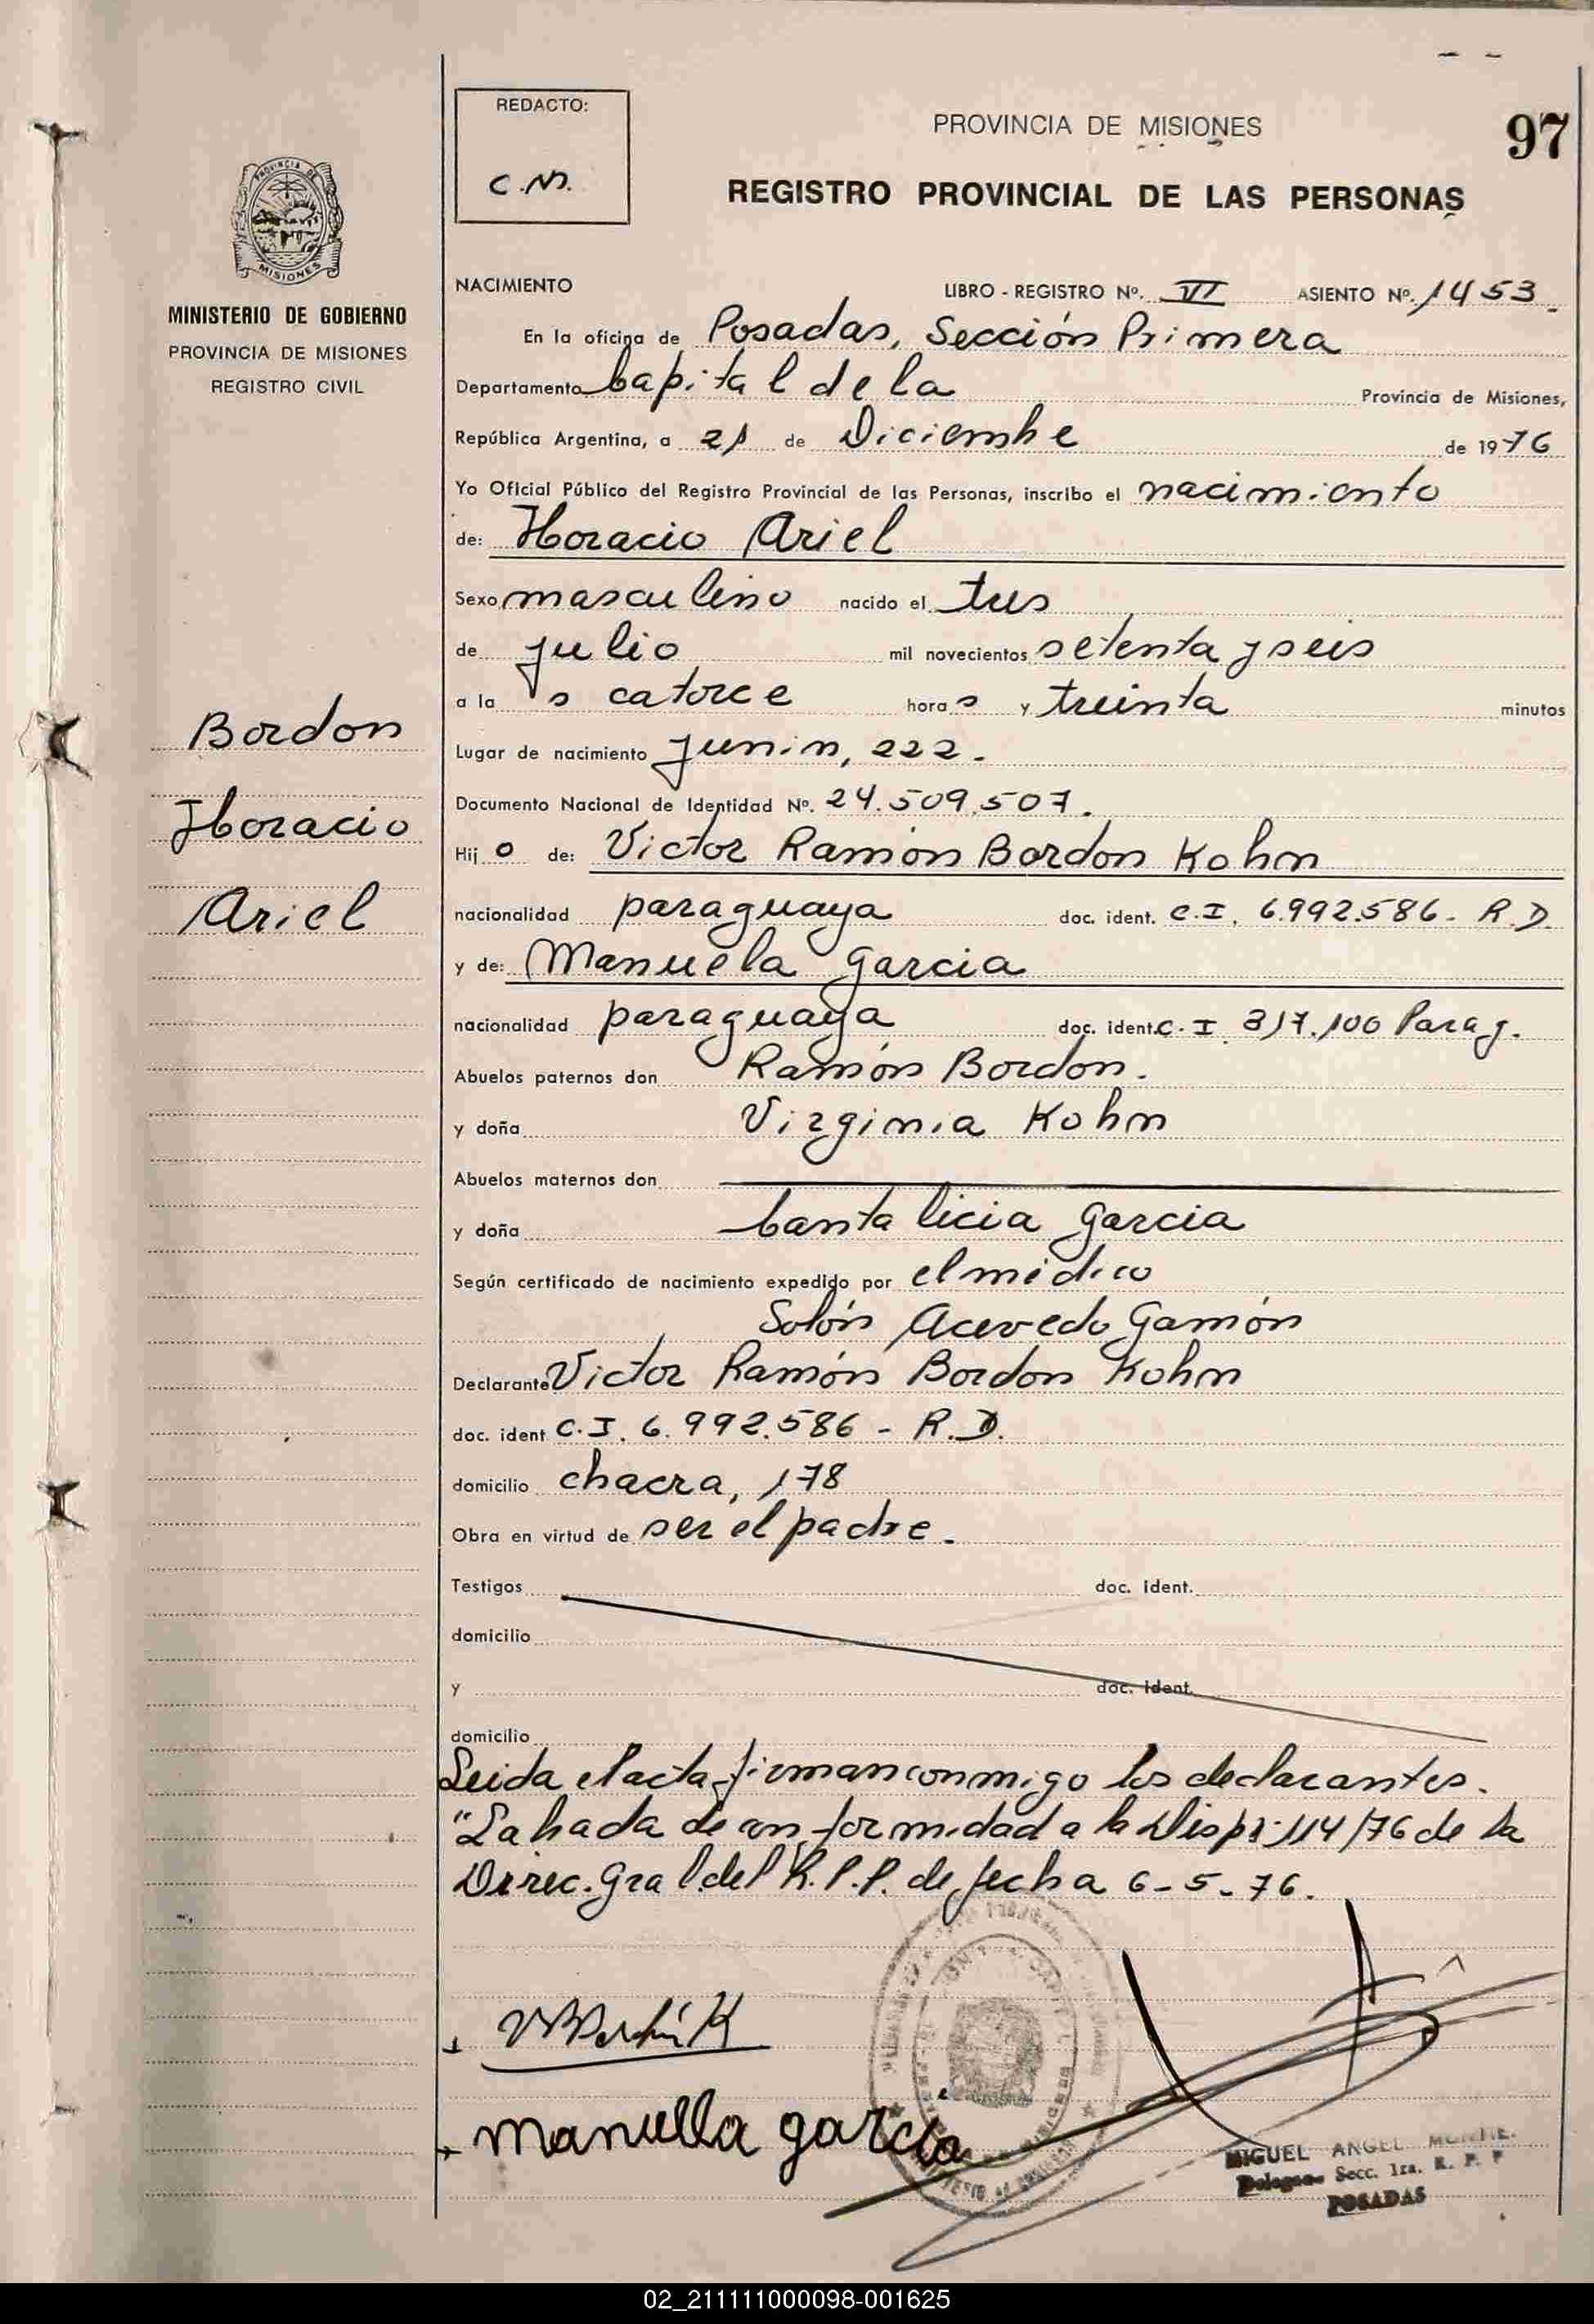 REDACTO:
C.M.
PROVINCIA DE MISIONES
97
REGISTRO PROVINCIAL DE LAS PERSONAS
PROVINCIA DE
MISIONES
MINISTERIO DE GOBIERNO
PROVINCIA DE MISIONES
REGISTRO CIVIL
Bordon
Horacio
Ariel
NACIMIENTO LIBRO - REGISTRO Nº. VI ASIENTO Nº. 1453
En la oficina de Posadas, Sección Primera
Departamento Capital de la Provincia de Misiones,
República Argentina, a 21 de Diciembre de 1976
Yo Oficial Público del Registro Provincial de las Personas, inscribo el nacimiento
de: Horacio Ariel
Sexo masculino nacido el tres
de julio mil novecientos setenta y seis
a la s catorce hora s y treinta minutos
Lugar de nacimiento Junin, 222.
Documento Nacional de Identidad Nº. 24.509.507.
Hij o de: Victor Ramón Bordon Kohn
nacionalidad paraguaya doc. ident. C.I. 6.992.586 - R.D.
y de: Manuela Garcia
nacionalidad paraguaya doc. ident. C.I. 317.100 Parag.
Abuelos paternos don Ramón Bordon.
y doña Virginia Kohn
Abuelos maternos don
y doña Cantalicia Garcia
Según certificado de nacimiento expedido por el médico
Solón Acevedo Gamón
Declarante Victor Ramón Bordon Kohn
doc. ident C.I. 6.992.586 - R.D.
domicilio chacra, 178
Obra en virtud de ser el padre.
Testigos doc. ident.
domicilio
y doc. ident.
domicilio
Leida el acta firman conmigo los declarantes.
"Labada de conformidad a la Disp: 114/76 de la
Direc. Gral. del R.P.P. de fecha 6-5-76.
manuella garcia
MIGUEL ANGEL
Secc. 1ra. R. P. P
POSADAS
02_211111000098-001625